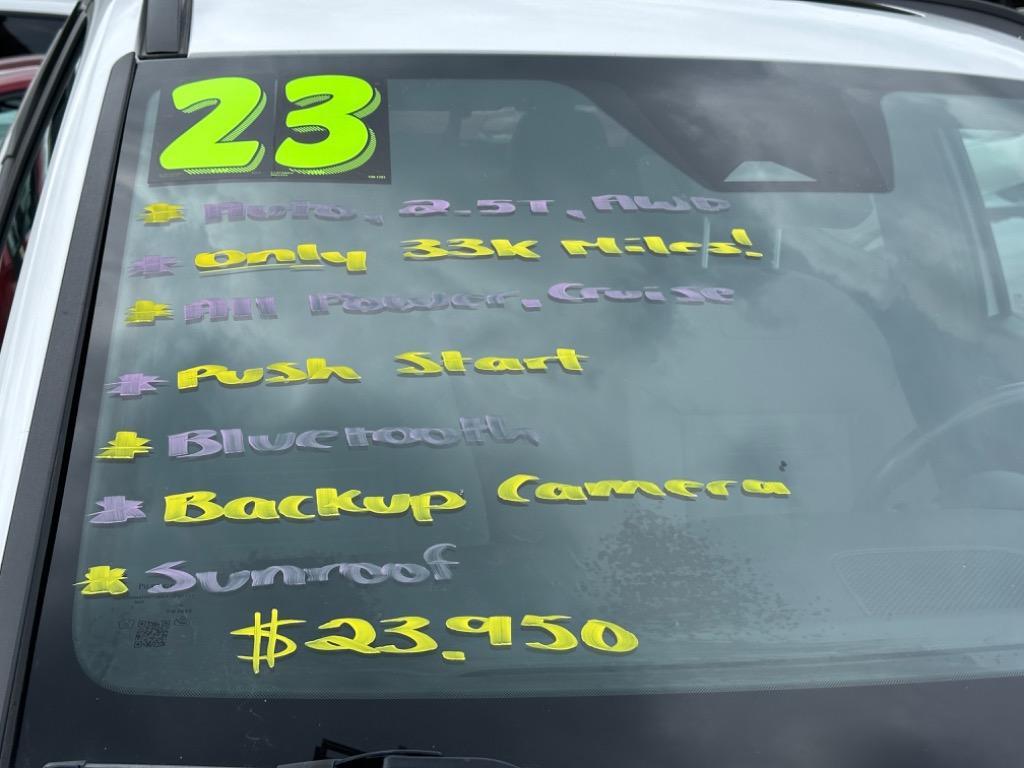 23
Auto, 2.5T, AWD
Only 33K Miles!
All Power, Cruise
Push Start
Bluetooth
Backup Camera
Sunroof
$23,950